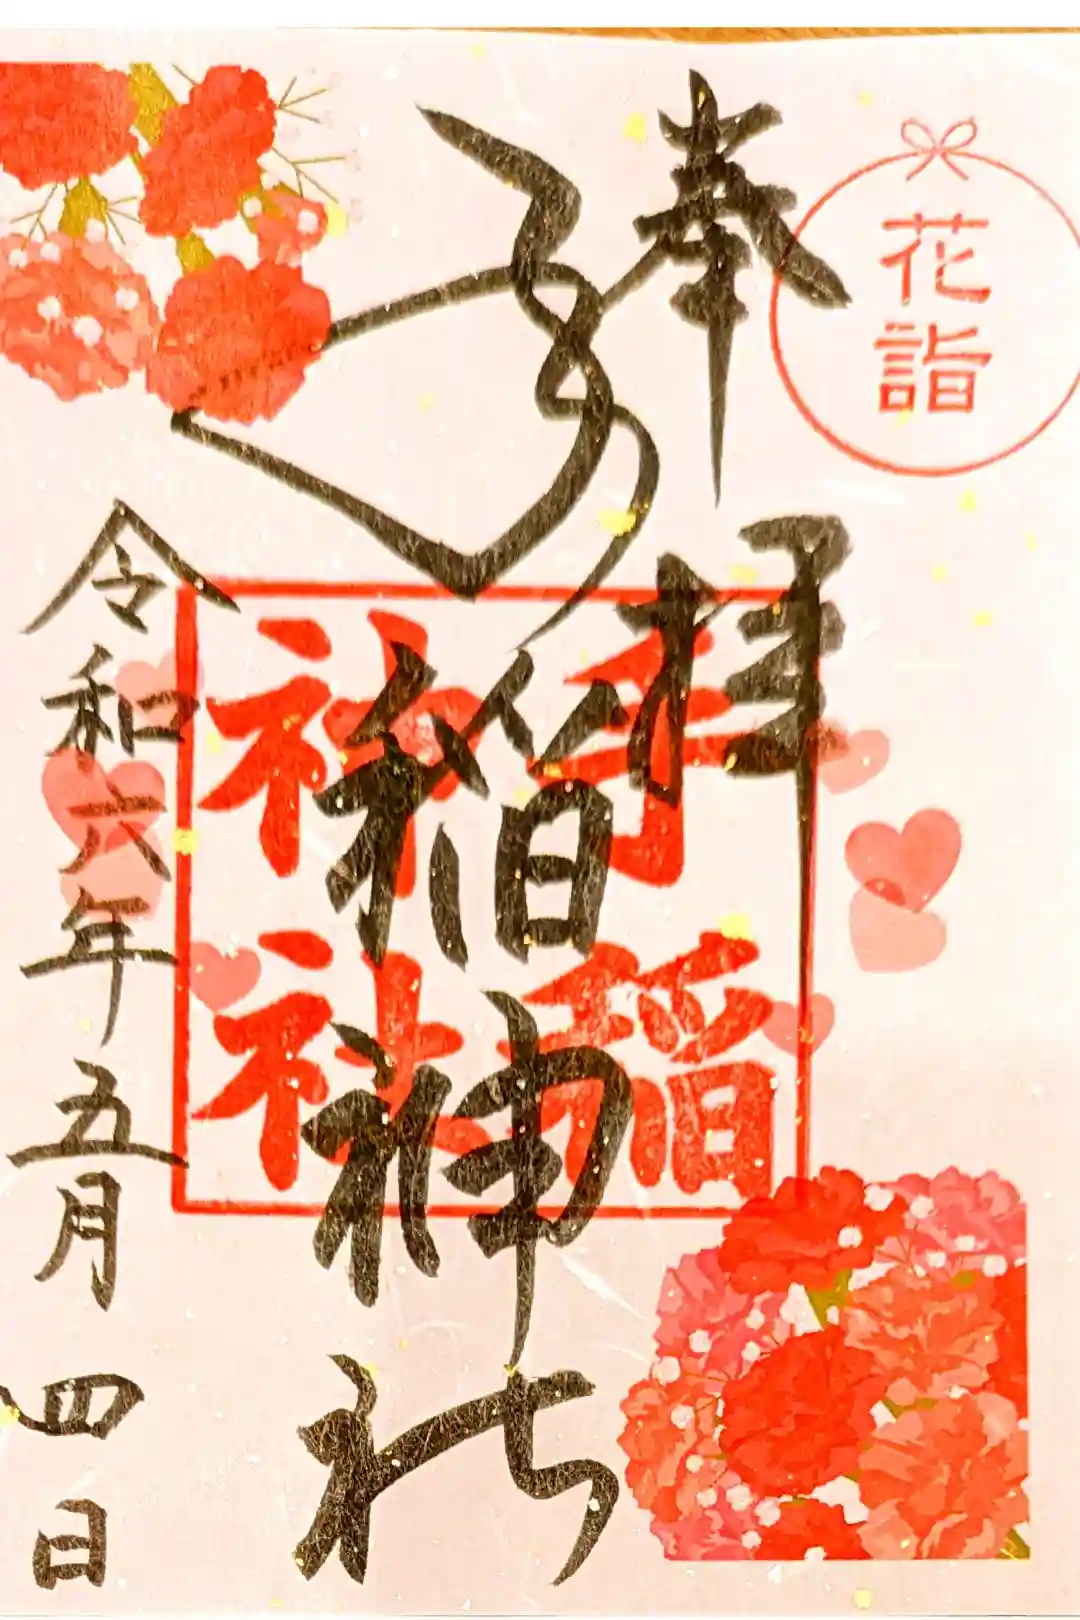 花詣
奉拝
手稲神社
手稲
神社
令和六年五月四日